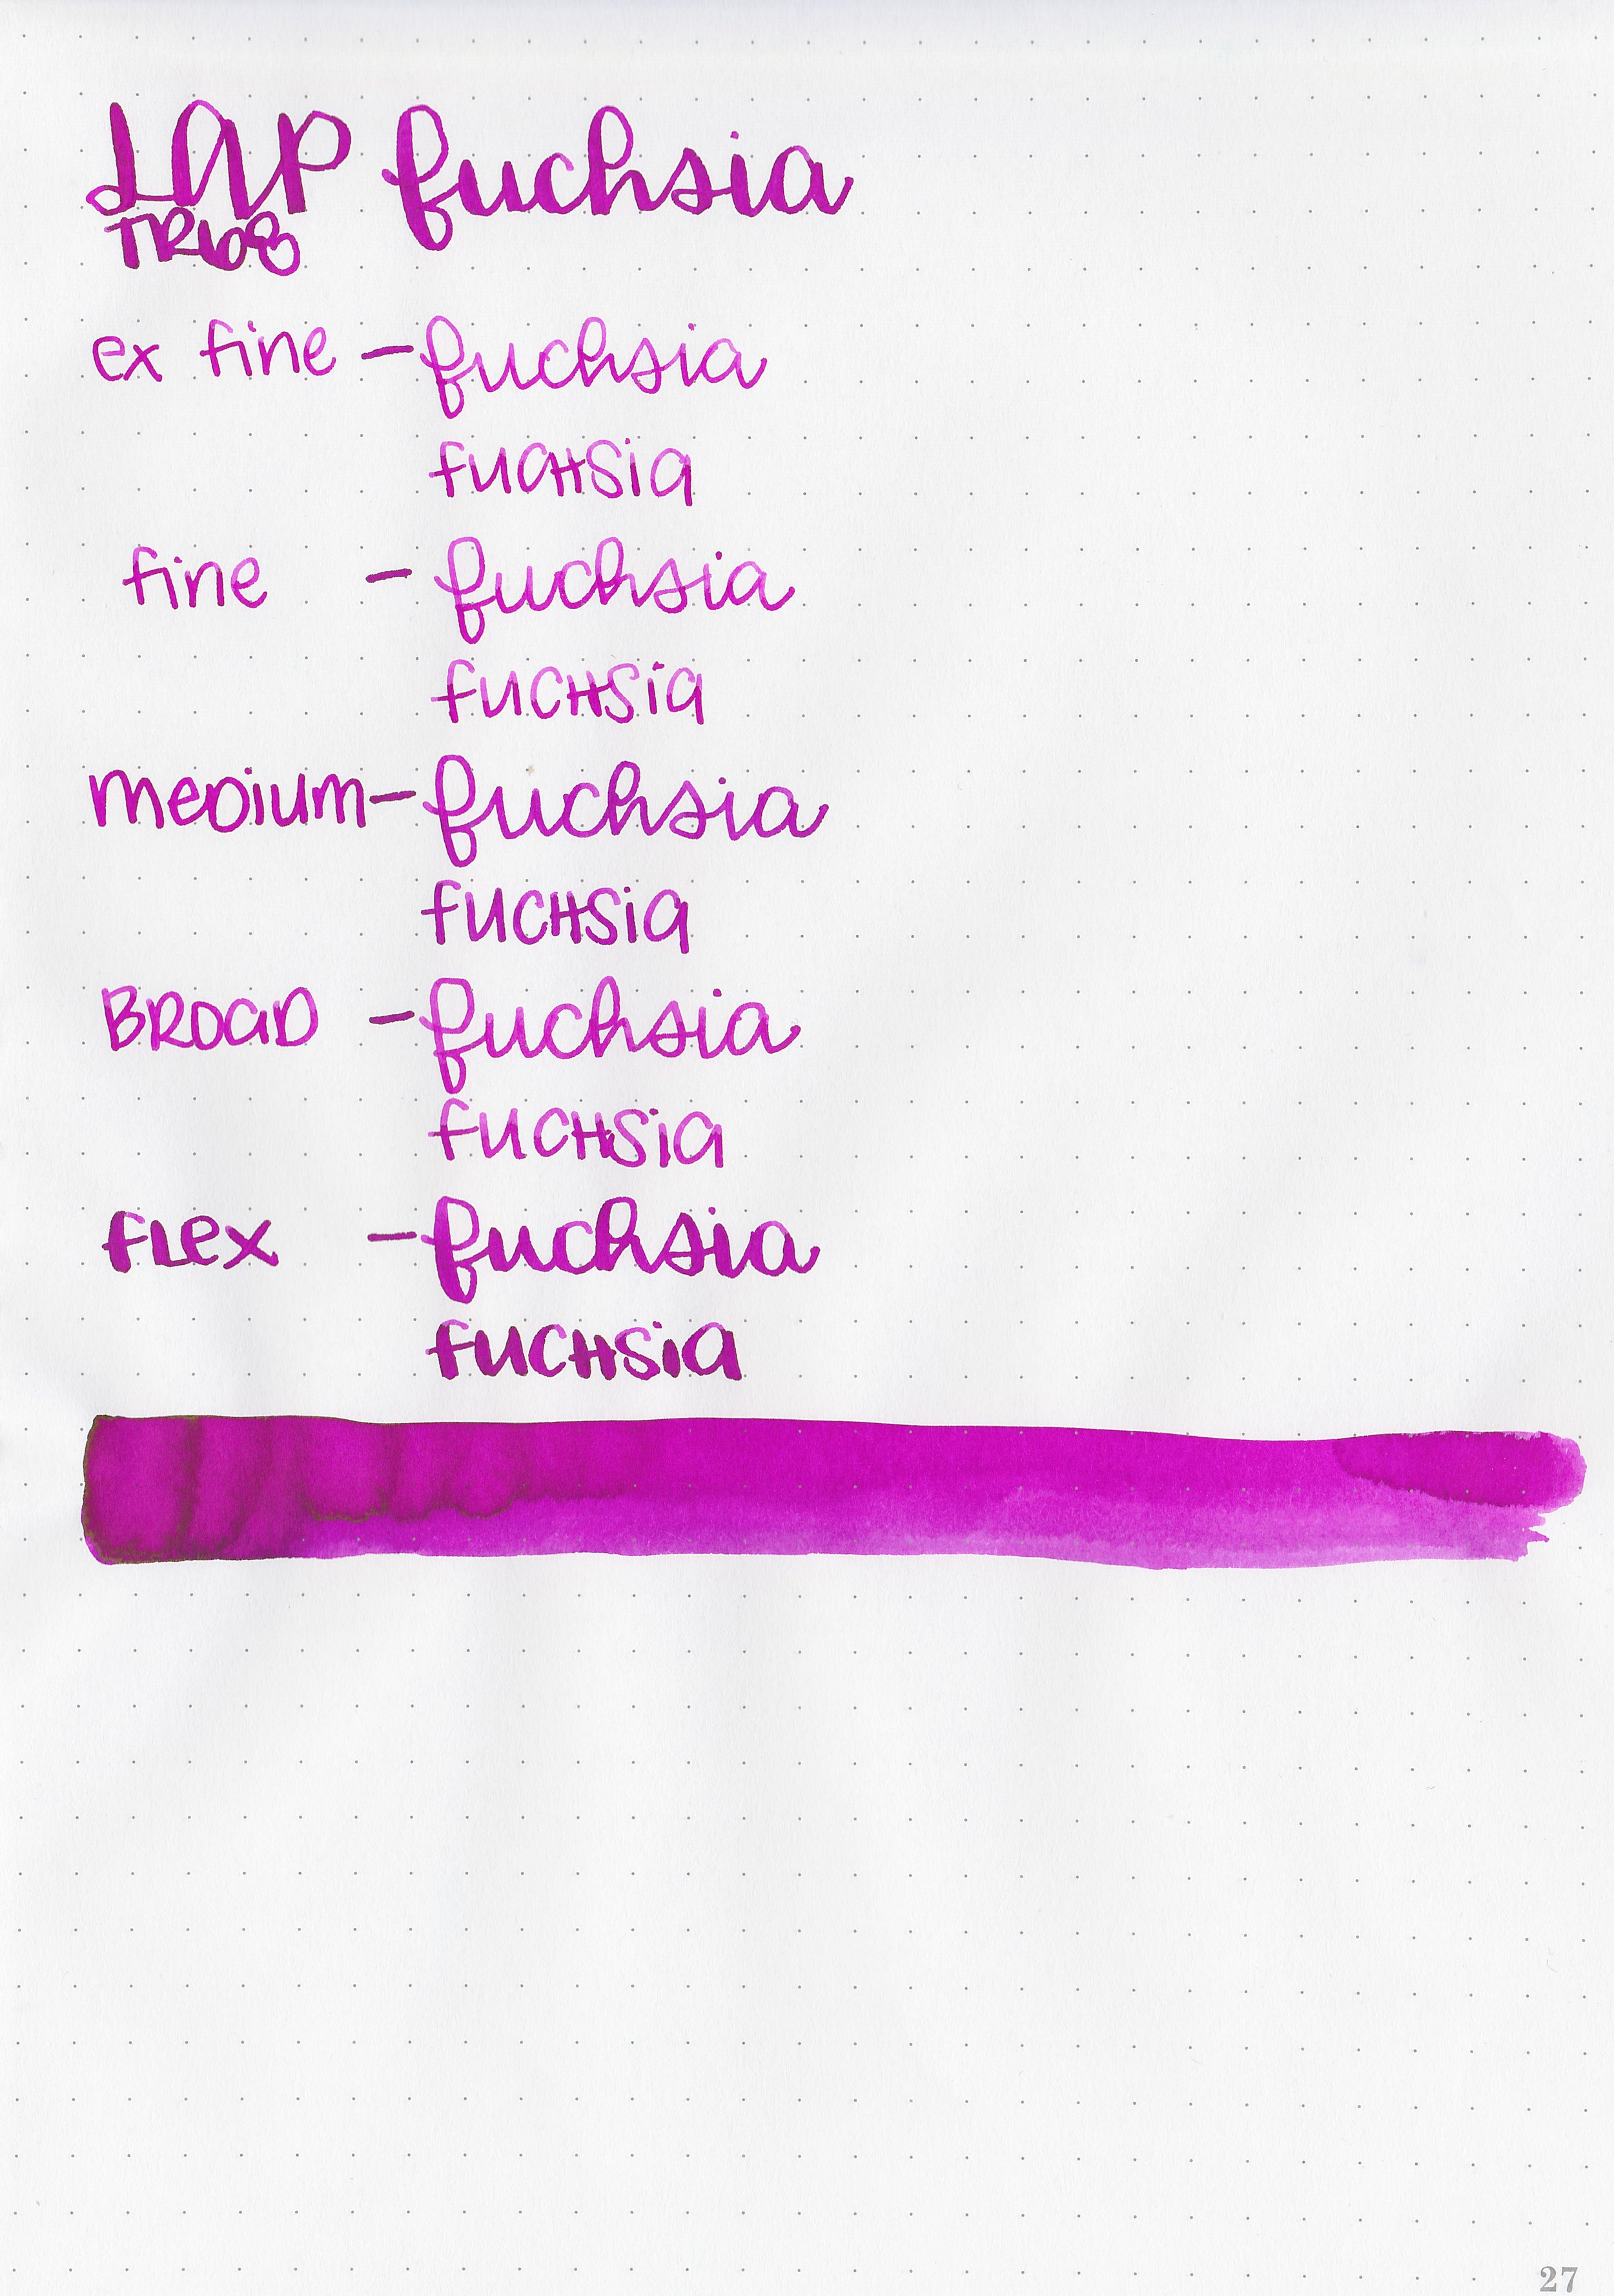 LAP fuchsia
TR108
ex fine - fuchsia
fuchsia
fine - fuchsia
fuchsia
medium - fuchsia
fuchsia
BROAD - fuchsia
fuchsia
flex - fuchsia
fuchsia
27